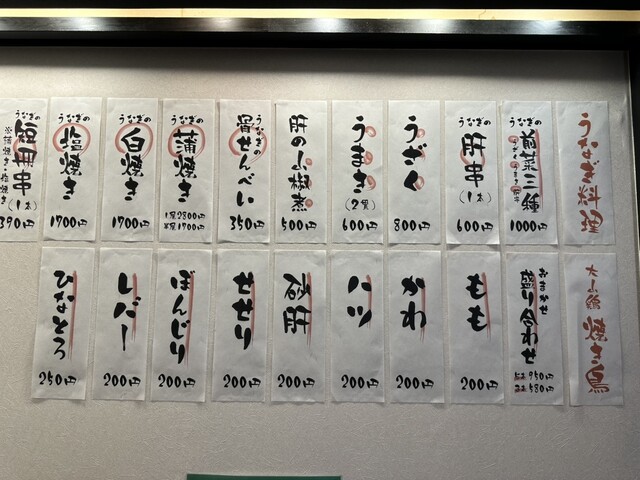 うなぎ料理
うなぎの
前菜三種
1000円
うなぎの
肝串
(1本)
600円
うざく
800円
うまき
(2貫)
600円
肝の山椒煮
500円
うなぎの
骨せんべい
350円
うなぎの
蒲焼き
1尾2800円
半尾1700円
うなぎの
白焼き
1700円
うなぎの
塩焼き
1700円
うなぎの
短冊串
(1本)
※蒲焼き・塩焼き
390円
大山鶏 焼き鳥
おまかせ
盛り合わせ
5本 950円
3本 580円
もも
200円
かわ
200円
ハツ
200円
砂肝
200円
せせり
200円
ぼんじり
200円
レバー
200円
ひなとろ
250円